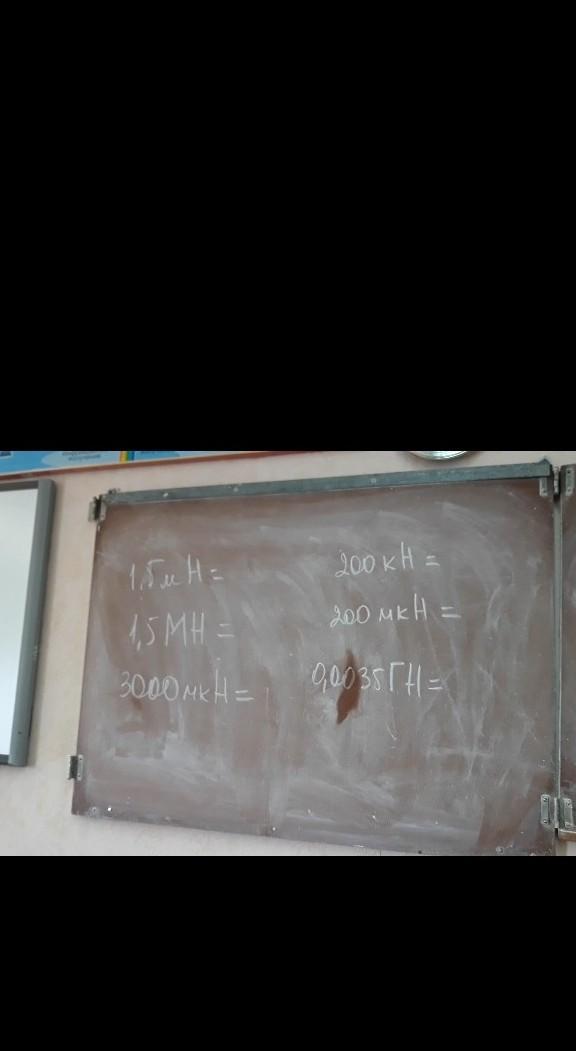 1,5мН=
1,5МН=
3000мкН=
200кН=
200мкН=
0,0035ГН=